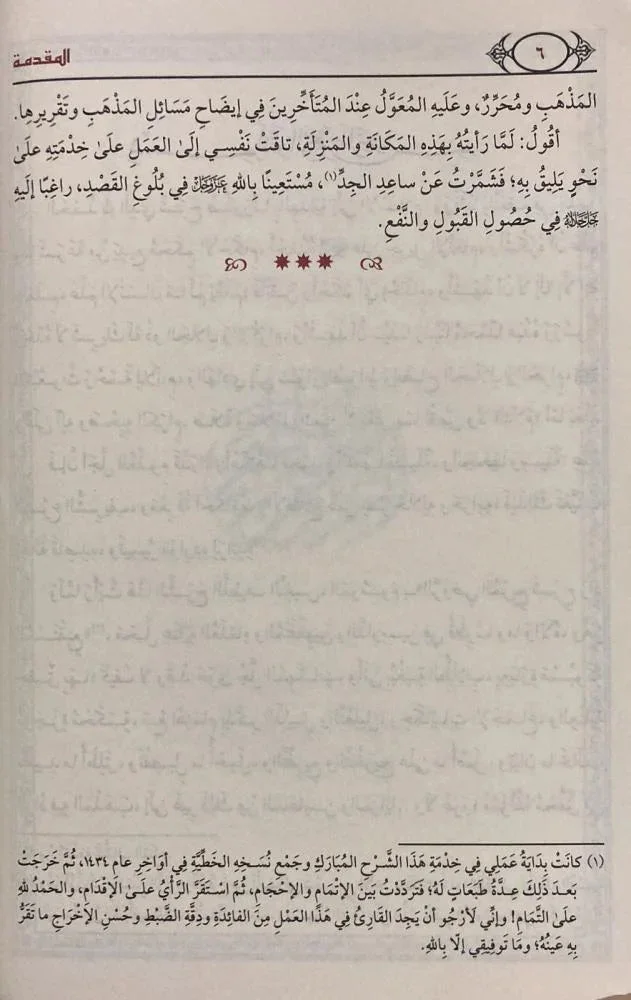 ٦
المقدمة
المَذْهَبِ ومُحَرِّرُ، وعَلَيهِ المُعَوَّلُ عِنْدَ المُتَأَخِّرِينَ فِي إيضَاحِ مَسَائِلِ المَذْهَبِ وتَقْرِيرِها.
أقُولُ: لَمَّا رَأيتُهُ بِهَذِهِ المَكَانَةِ والمَنْزِلَةِ، تاقَتْ نَفْسِي إلىٰ العَمَلِ علىٰ خِدْمَتِهِ علىٰ
نَحْوٍ يَلِيقُ بِهِ؛ فَشَمَّرْتُ عَنْ ساعِدِ الجِدِّ(١)، مُسْتَعِينًا بِاللهِ عَزَّوَجَلَّ فِي بُلُوغِ القَصْدِ، راغِبًا إلَيهِ
جَلَّجَلَالُهُ فِي حُصُولِ القَبُولِ والنَّفْعِ.
(١) كانَتْ بِدَايَةُ عَمَلِي فِي خِدْمَةِ هَذَا الشَّرْحِ المُبَارَكِ وجَمْعِ نُسَخِهِ الخَطِّيَّةِ فِي أوَاخِرِ عامِ ١٤٣٤، ثُمَّ خَرَجَتْ
بَعدَ ذَلِكَ عِدَّةُ طَبَعَاتٍ لَهُ؛ فَتَرَدَّدْتُ بَينَ الإتْمَامِ والإحْجَامِ، ثُمَّ اسْتَقَرَّ الرَّأيُ علىٰ الإقْدَامِ، والحَمْدُ للهِ
علىٰ التَّمَامِ! وإنِّي لَأرْجُو أنْ يَجِدَ القَارِئُ فِي هَذَا العَمَلِ مِنَ الفَائِدَةِ ودِقَّةِ الضَّبْطِ وحُسْنِ الإخْرَاجِ ما تَقَرُّ
بِهِ عَينُهُ؛ ومَا تَوفِيقِي إلَّا بِاللهِ.